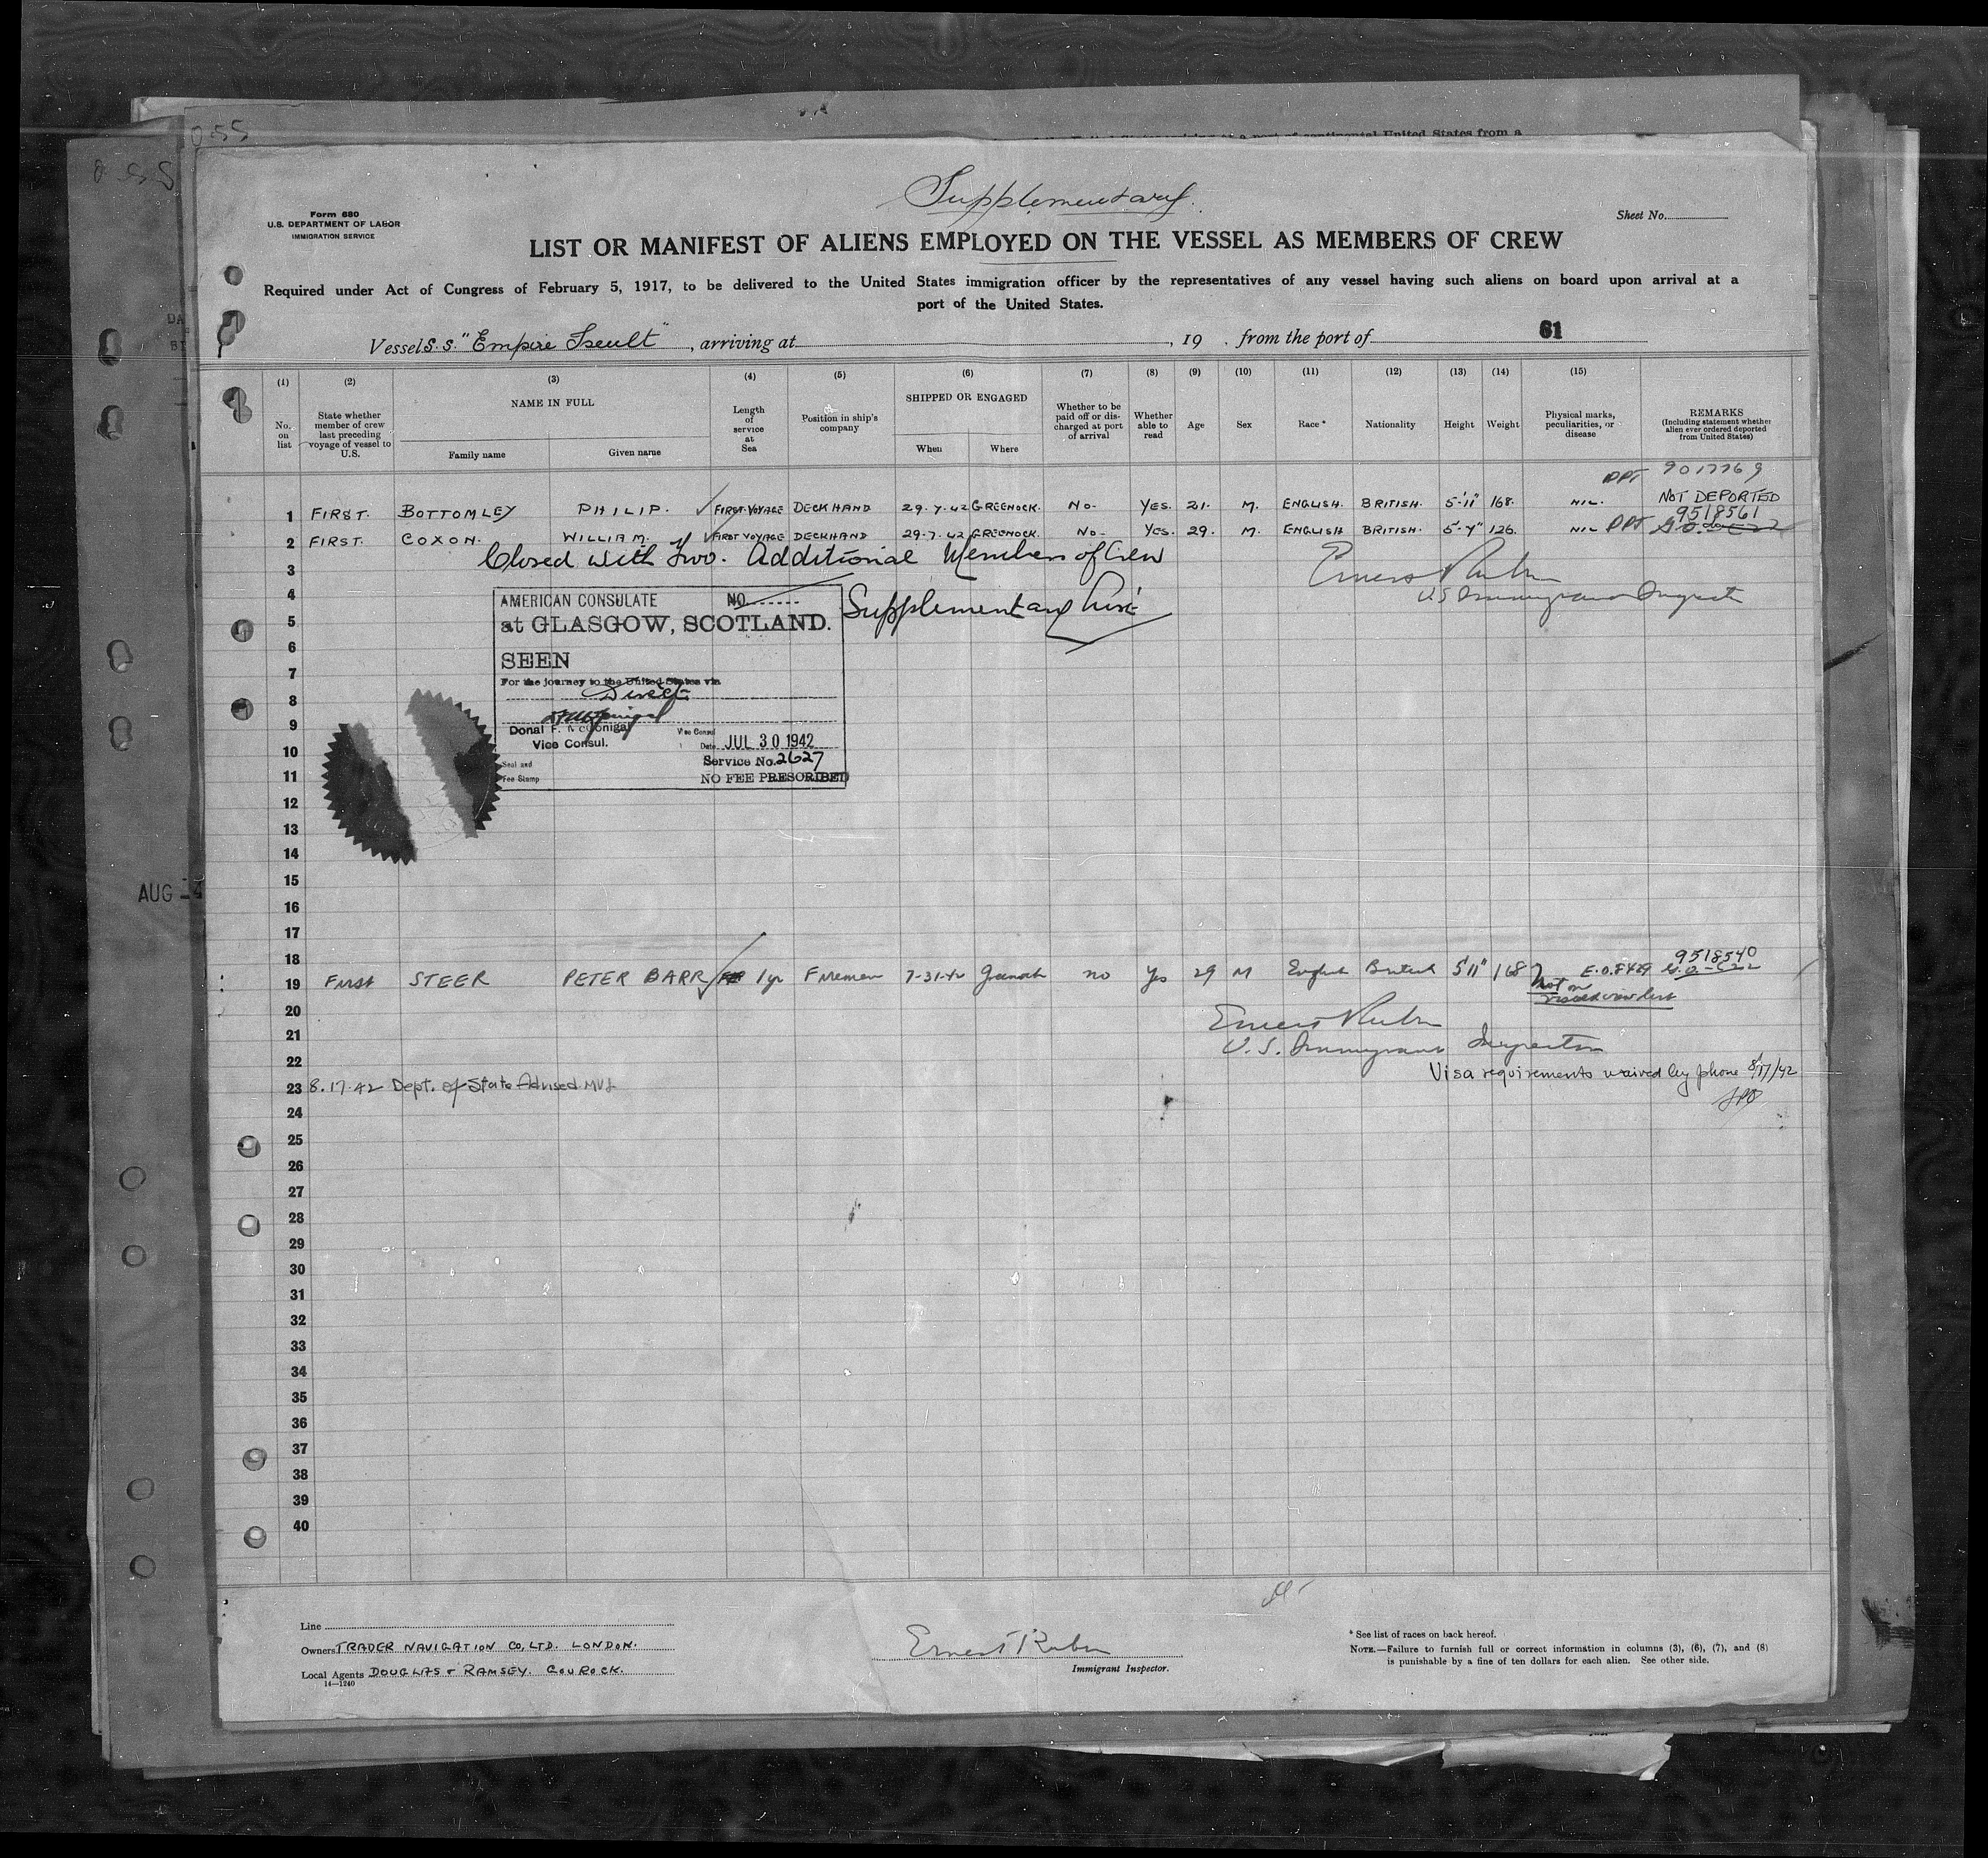 055
Supplementary.
Form 680
U.S. DEPARTMENT OF LABOR
IMMIGRATION SERVICE
Sheet No.
LIST OR MANIFEST OF ALIENS EMPLOYED ON THE VESSEL AS MEMBERS OF CREW
Required under Act of Congress of February 5, 1917, to be delivered to the United States immigration officer by the representatives of any vessel having such aliens on board upon arrival at a
port of the United States.
Vessel S.S. "Empire Iseult", arriving at , 19 . from the port of 61
(1) (2) (3) (4) (5) (6) (7) (8) (9) (10) (11) (12) (13) (14) (15)
No. on list
State whether member of crew last preceding voyage of vessel to U.S.
NAME IN FULL
Family name Given name
Length of service at Sea
Position in ship's company
SHIPPED OR ENGAGED
When Where
Whether to be paid off or discharged at port of arrival
Whether able to read
Age Sex Race * Nationality Height Weight
Physical marks, peculiarities, or disease
REMARKS
(Including statement whether alien ever ordered deported from United States)
PPT 9017769
1 FIRST. BOTTOMLEY PHILIP. FIRST VOYAGE DECKHAND 29.7.42 GREENOCK. No- YES. 21. M. ENGLISH. BRITISH. 5-11" 168. NIL. NOT DEPORTED
9518561
2 FIRST. COXON. WILLIAM. FIRST VOYAGE DECKHAND 29.7.42 GREENOCK. No- YES. 29. M. ENGLISH BRITISH. 5-7" 126. NIL PPT
3 Closed with Two. Additional Members of Crew
Ernest Rubin
U.S. Immigrant Inspector
4 AMERICAN CONSULATE NO
Supplementary List
5 at GLASGOW, SCOTLAND.
6 SEEN
7 For the journey to the United States via
8 Direct
9 Donal F. McGonigal Vice Consul
10 Vice Consul. Date JUL 30 1942
11 Seal and Fee Stamp Service No. 2627
NO FEE PRESCRIBED
12
13
14
AUG 4
15
16
17
18
9518540
19 First STEER PETER BARR 1yr Fireman 7-31-42 Greenock no Yes 29 M English British 5'11" 168 E.O.8429
not on
visaed crew list
20
Ernest Rubin
21
U.S. Immigrant Inspector
22
Visa requirements waived by phone 8/17/42
23 8.17.42 Dept. of State Advised MVL
24
25
26
27
28
29
30
31
32
33
34
35
36
37
38
39
40
Line
Owners TRADER NAVIGATION CO, LTD. LONDON.
Local Agents DOUGLAS & RAMSEY. GOUROCK.
14—1240
Ernest Rubin
Immigrant Inspector.
* See list of races on back hereof.
NOTE.—Failure to furnish full or correct information in columns (3), (6), (7), and (8)
is punishable by a fine of ten dollars for each alien. See other side.